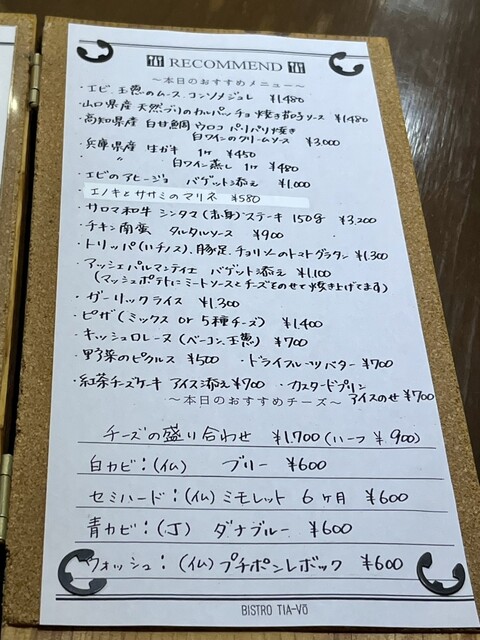 RECOMMEND
～本日のおすすめメニュー～
・エビ、玉葱のムース コンソメジュレ ¥1,480
・山口県産 天然ブリのカルパッチョ 焼き茄子ソース ¥1,480
・高知県産 白甘鯛 ウロコ パリパリ焼き
白ワインのクリームソース ¥3,000
・兵庫県産 生ガキ 1ヶ ¥450
〃 白ワイン蒸し 1ヶ ¥480
・エビのアヒージョ バゲット添え ¥1,000
・エノキとササミのマリネ ¥580
・サロマ和牛 シンタマ(赤身)ステーキ 150g ¥3,200
・チキン南蛮 タルタルソース ¥900
・トリッパ(ハチノス)、豚足、チョリソーのトマトグラタン ¥1,300
・アッシェパルマンティエ バゲット添え ¥1,100
(マッシュポテトにミートソースとチーズをのせて焼き上げてます)
・ガーリックライス ¥1,300
・ピザ(ミックス or 5種チーズ) ¥1,400
・キッシュロレーヌ(ベーコン、玉葱) ¥700
・野菜のピクルス ¥500 ・ドライフルーツバター ¥700
・紅茶チーズケーキ アイス添え ¥700 ・カスタードプリン
アイスのせ ¥700
～本日のおすすめチーズ～
チーズの盛り合わせ ¥1,700(ハーフ ¥900)
白カビ:(仏) ブリー ¥600
セミハード:(仏) ミモレット 6ヶ月 ¥600
青カビ:(丁) ダナブルー ¥600
ウォッシュ:(仏) プチポンレボック ¥600
BISTRO TIA-VO